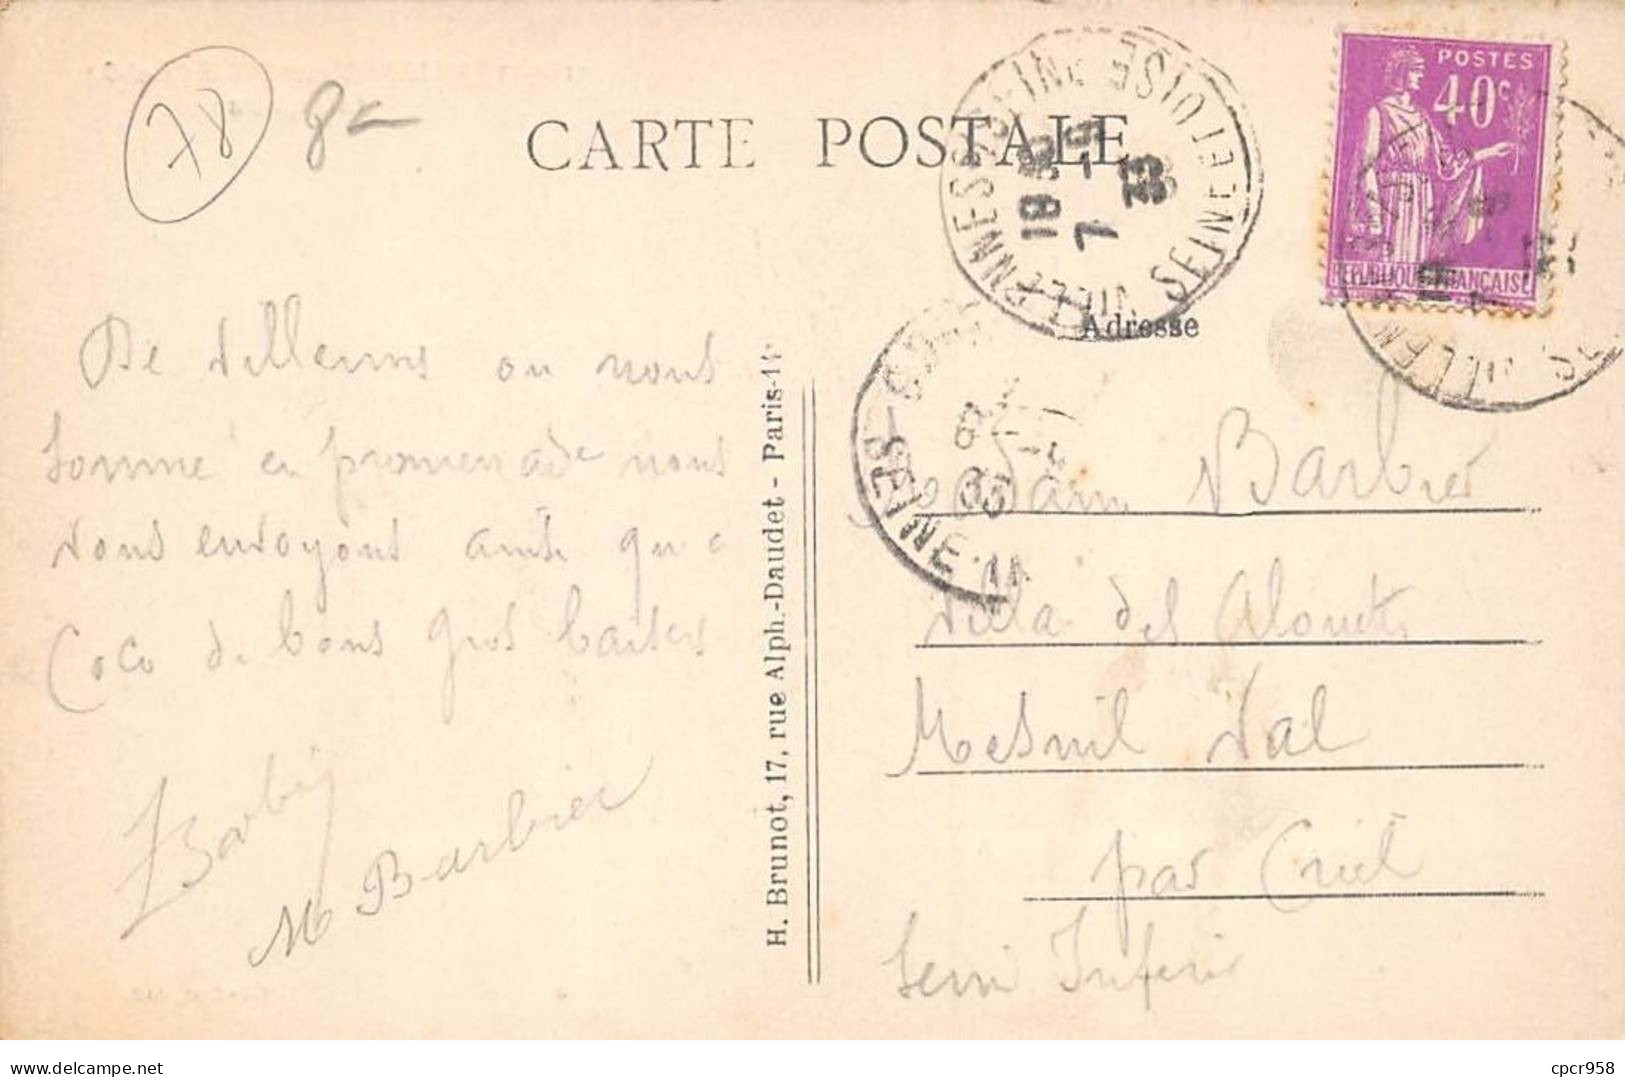 78
8-
CARTE POSTALE
POSTES
40c
REPUBLIQUE FRANÇAISE
VILLENNES-SUR-SEINE
SEINE ET OISE
18 35
7 -4
35
Adresse
8 -4
35
SEINE-IN
De Villenne ou nous
somme en promenade nous
vous envoyons ainsi que
Coco de bons gros baisers
Barbier
M Barbier
H. Brunot, 17, rue Alph.-Daudet - Paris-14e
Madam Barbier
Villa des Alouette
Mesnil Val
par Criel
Seine Inferi
cpcr958